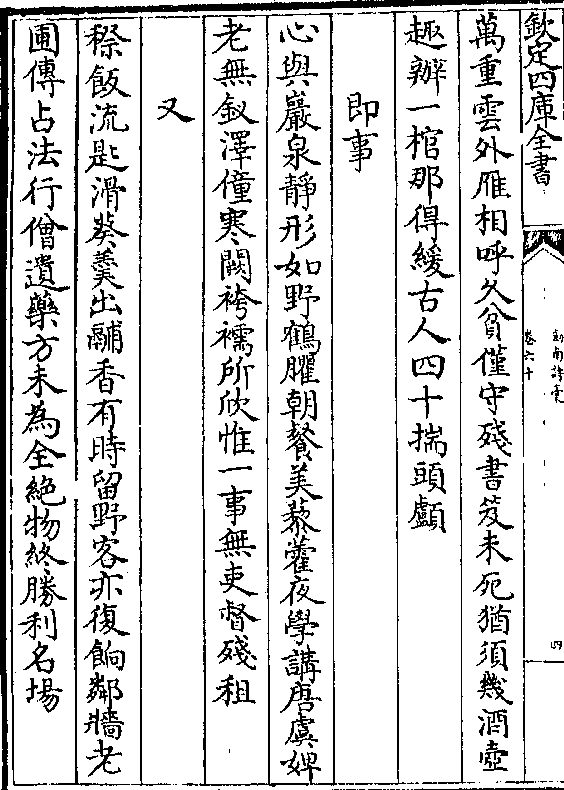 欽定四庫全書
劍南詩稾
卷六十
四
萬重雲外雁相呼久貧僅守殘書笈未死猶須幾酒壺
趣辦一棺那得緩古人四十揣頭顱
即事
心與巖泉静形如野鶴臞朝餐美藜藿夜學講唐虞婢
老無釵澤僮寒闕袴襦所欣惟一事無吏督殘租
又
穄飯流匙滑葵羮出鬴香有時留野客亦復餉鄰牆老
圃傳占法行僧遺藥方未為全絶物終勝利名塲